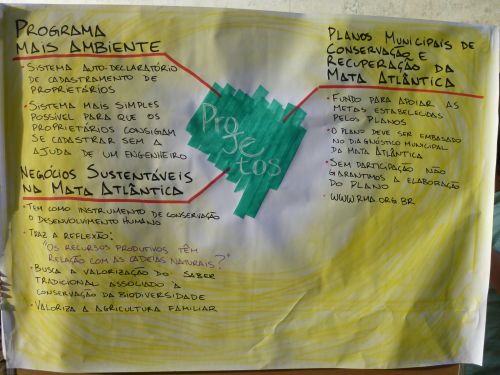 Programa
Mais Ambiente
• Sistema auto-declaratório
de cadastramento de
proprietários
• Sistema mais simples
possível para que os
proprietários consigam
se cadastrar sem a
ajuda de um engenheiro
Negócios Sustentáveis
na Mata Atlântica
• Tem como instrumento de conservação
o desenvolvimento humano
• Traz a reflexão:
"Os recursos produtivos têm
relação com as cadeias naturais?"
• Busca a valorização do saber
tradicional associado à
conservação da biodiversidade
• Valoriza a agricultura familiar
Proje
tos
Planos Municipais de
Conservação e
Recuperação da
Mata Atlântica
• Fundo para apoiar as
metas estabelecidas
pelos planos
• O plano deve ser embasado
no diagnóstico municipal
da Mata Atlântica
• Sem participação não
garantimos a elaboração
do plano
• www.rma.org.br